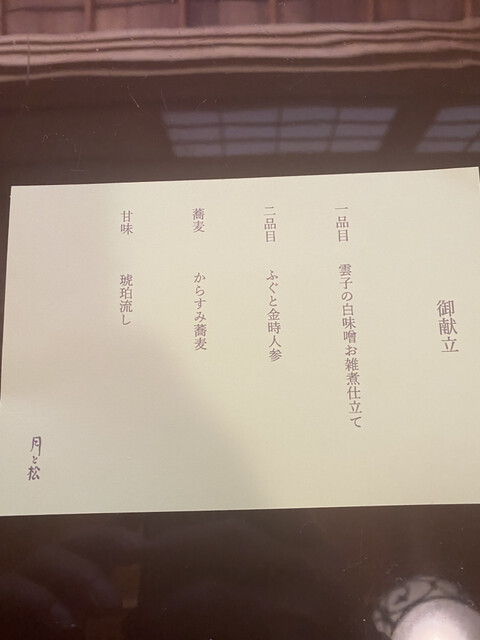 御献立
一品目　雲子の白味噌お雑煮仕立て
二品目　ふぐと金時人参
蕎麦　からすみ蕎麦
甘味　琥珀流し
月と松